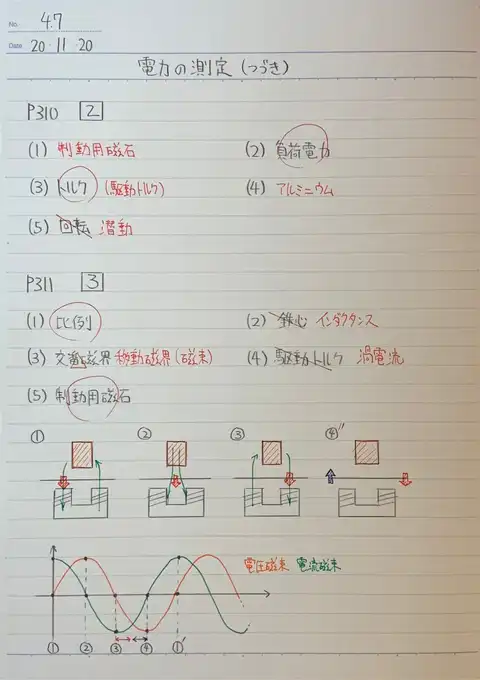 No. 47
Date 20・11・20
電力の測定 (つづき)
P310 2
(1) 制動用磁石 (2) 負荷電力
(3) トルク (駆動トルク) (4) アルミニウム
(5) 回転 潜動
P311 3
(1) 比例 (2) 鉄心 インダクタンス
(3) 交番磁界 移動磁界 (磁束) (4) 駆動トルク 渦電流
(5) 制動用磁石
① ② ③ ④''
電圧磁束 電流磁束
① ② ③ ④ ①'